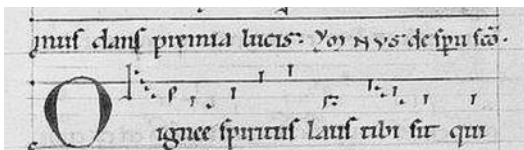 mus dans premia lucis. YMNVS de spu sco.
O ignee spiritus laus tibi sit qui